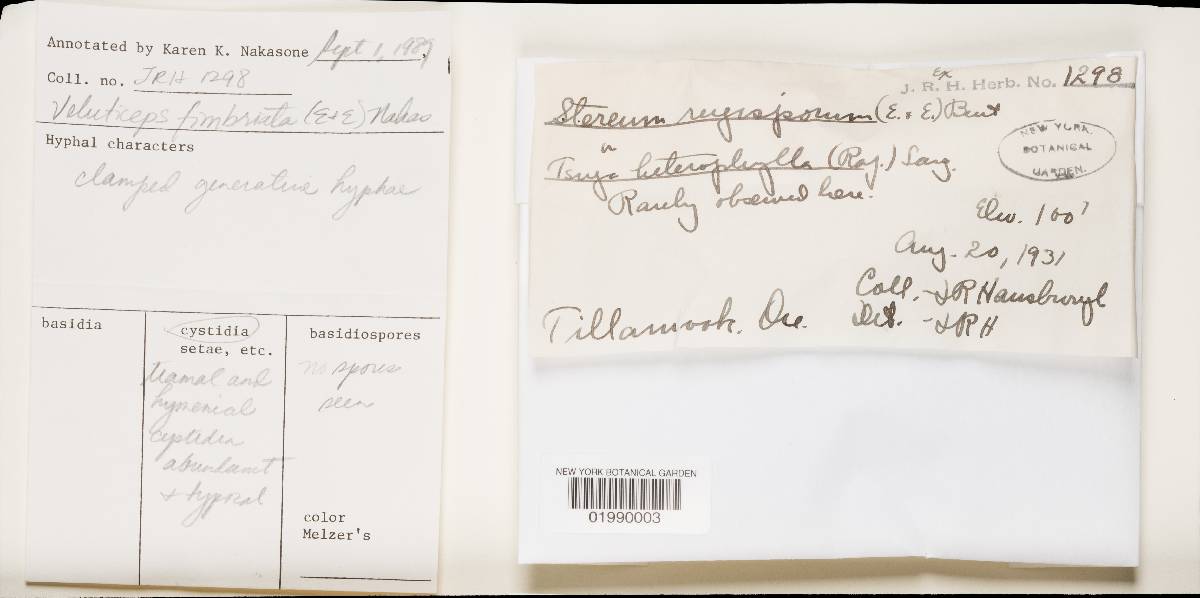 Annotated by Karen K. Nakasone Sept 1, 1989,
Coll. no. JRH 1298
Veluticeps fimbriata (E+E) Nakas
Hyphal characters
clamped generative hyphae
basidia
cystidia
setae, etc.
tramal and
hymenial
cystidia
abundant
+ typical
basidiospores
no spores
seen
color
Melzer's
Ex
J. R. H. Herb. No. 1298
Stereum rugisporum (E. & E.) Burt
NEW YORK
BOTANICAL
GARDEN.
on
Tsuga heterophylla (Raf.) Sarg.
Rarely observed here.
Elev. 100'
Aug. 20, 1931
Coll. - J R Hansbrough
Tillamook, Ore. Det. - J R H
NEW YORK BOTANICAL GARDEN
01990003